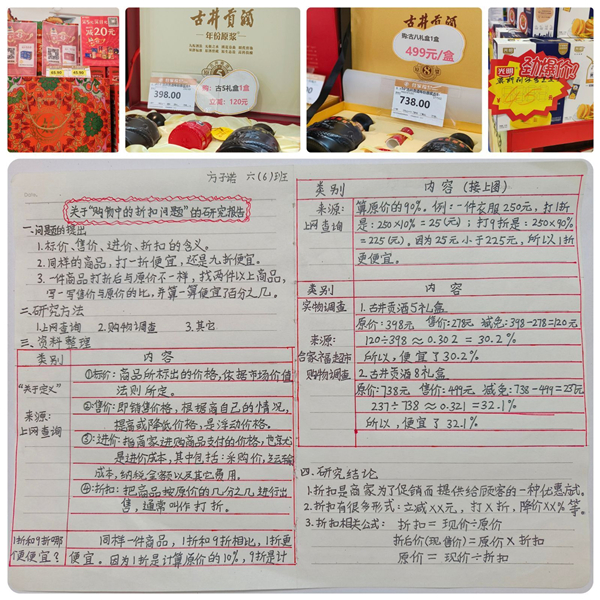 减
20元
古井贡酒
年份原浆
5
398.00
购：古5礼盒1盒
立减：120元
古井贡酒
购：古八礼盒1盒
499元/盒
8
738.00
光明
劲爆价!
方子诺 六(6)班
关于“购物中的折扣问题”的研究报告
一.问题的提出
1.标价、售价、进价、折扣的含义。
2.同样的商品，打一折便宜，还是九折便宜。
3.一件商品打折后与原价不一样，找两件以上商品，
写一写售价与原价的比，并算一算便宜百分之几。
二.研究方法
1.上网查询 2.购物调查 3.其它
三.资料整理
类别 内容
“关于定义”
来源：
上网查询
①标价：商品所标出的价格，依据市场价值
法则所定。
②售价：即销售价格，根据商自己的情况，
提高或降低价格，是浮动价格。
③进价：指商家进购商品支付的价格，也
是进价成本，其中包括：采购价，运输
成本，纳税金额以及其它费用。
④折扣：把商品按原价的几分之几进行出
售，通常叫作打折。
1折和9折哪
便便宜？
同样一件商品，1折和9折相比，1折更
便宜。因为1折是计算原价的10%，9折是计
类别 内容（接上图）
来源：
上网查询
算原价的90%。例：一件衣服250元，打1折
是：250×10%=25(元)；打9折是：250×90%
=225(元)。因为25元小于225元，所以1折
更便宜。
类别 内容
实物调查
来源：
合家福超市
购物调查
1.古井贡酒5礼盒
原价：398元 售价：278元 减免：398-278=120元
120÷398≈0.302=30.2%
所以，便宜了30.2%
2.古井贡酒8礼盒
原价：738元 售价：499元 减免：738-499=237元
237÷738≈0.321=32.1%
所以，便宜了32.1%
四.研究结论
1.折扣是商家为了促销而提供给顾客的一种优惠方式。
2.折扣有很多形式：立减XX元，打X折，降价XX%等。
3.折扣相关公式：折扣=现价÷原价
折后价(现售价)=原价×折扣
原价=现价÷折扣